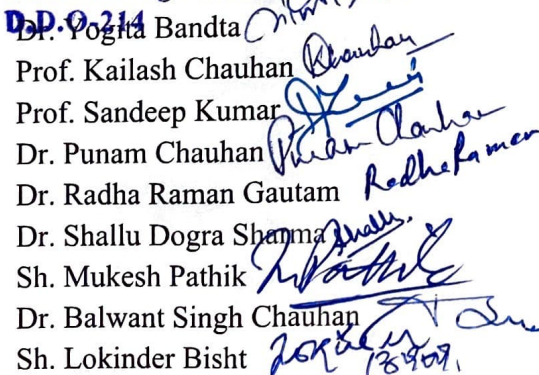 D.D.O-214
Dr. Yogita Bandta
Prof. Kailash Chauhan KChauhan
Prof. Sandeep Kumar
Dr. Punam Chauhan Punam Chauhan
Dr. Radha Raman Gautam Radha Raman
Dr. Shallu Dogra Sharma Shallu.
Sh. Mukesh Pathik Pathik
Dr. Balwant Singh Chauhan
Sh. Lokinder Bisht